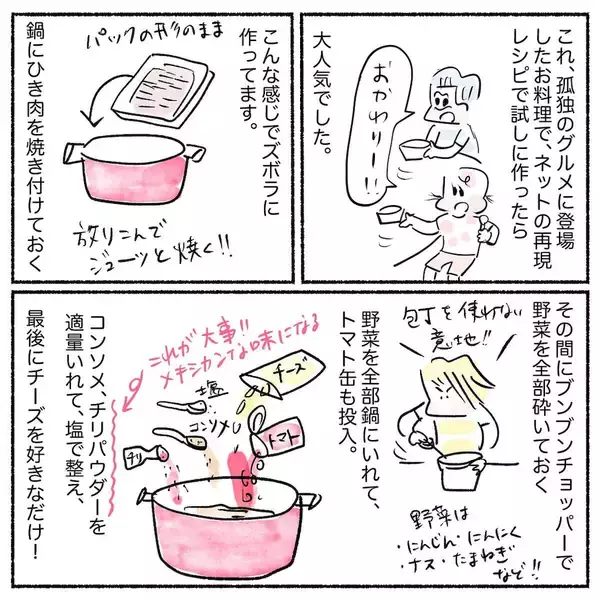 これ、孤独のグルメに登場
したお料理で、ネットの再現
レシピで試しに作ったら
大人気でした。
おかわりー!!
こんな感じでズボラに
作ってます。
パックの形のまま
放りこんで
ジューッと焼く!!
鍋にひき肉を焼き付けておく
その間にブンブンチョッパーで
野菜を全部砕いておく
包丁を使わない
意地!!
野菜は
・にんじん・にんにく
・ナス・たまねぎ
など!!
野菜を全部鍋にいれて、
トマト缶も投入。
チーズ
塩
コンソメ
トマト
チリ
これが大事!!
メキシカンな味になる
コンソメ、チリパウダーを
適量いれて、塩で整え、
最後にチーズを好きなだけ!